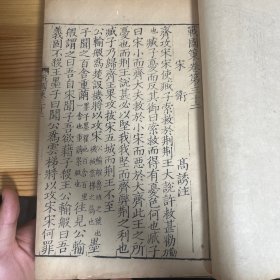 戰國策卷第三
宋 衛 高誘注
齊攻宋宋使臧子索救於荊荊王大說許救甚勸臧
子憂而反其御曰索救而得有憂色何也臧子
曰宋小而齊大夫救於小宋而惡於大齊此王之所
憂也而荊王說甚必以堅我我堅而齊弊荊之利也
臧子乃歸齊王果攻拔宋五城而荊王不至
公輸般為楚設機將以攻宋墨
子聞之百舍重繭往見公輸
般謂之曰吾自宋聞子吾欲藉子殺王公輸般曰吾
義固不殺王墨子曰聞公為雲梯將以攻宋宋何罪